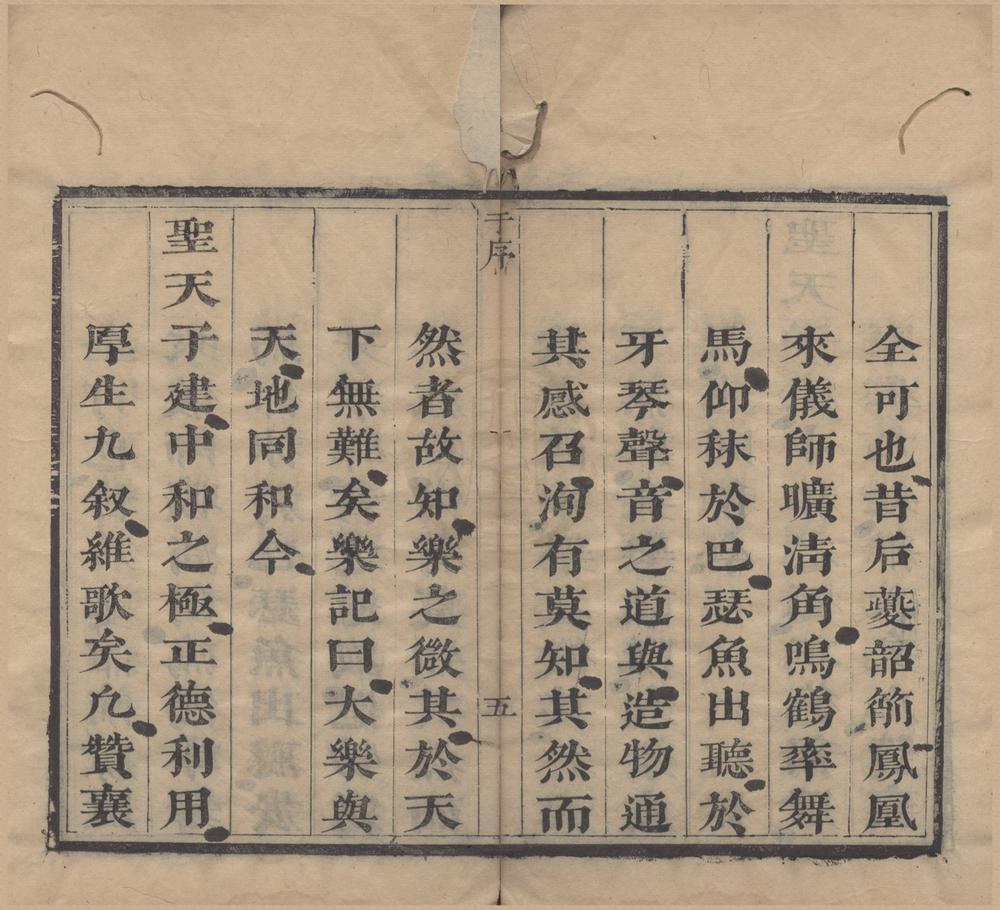 全可也昔后夔韶箾鳳凰
來儀師曠淸角鳴鶴率舞
馬仰秣於巴瑟魚出聽於
牙琴聲音之道與造物通
其感召洵有莫知其然而
于序
五
然者故知樂之微其於天
下無難矣樂記曰大樂與
天地同和今
聖天子建中和之極正德利用
厚生九叙維歌矣凢贊襄